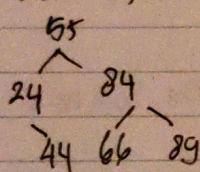 55
24 84
44 66 89